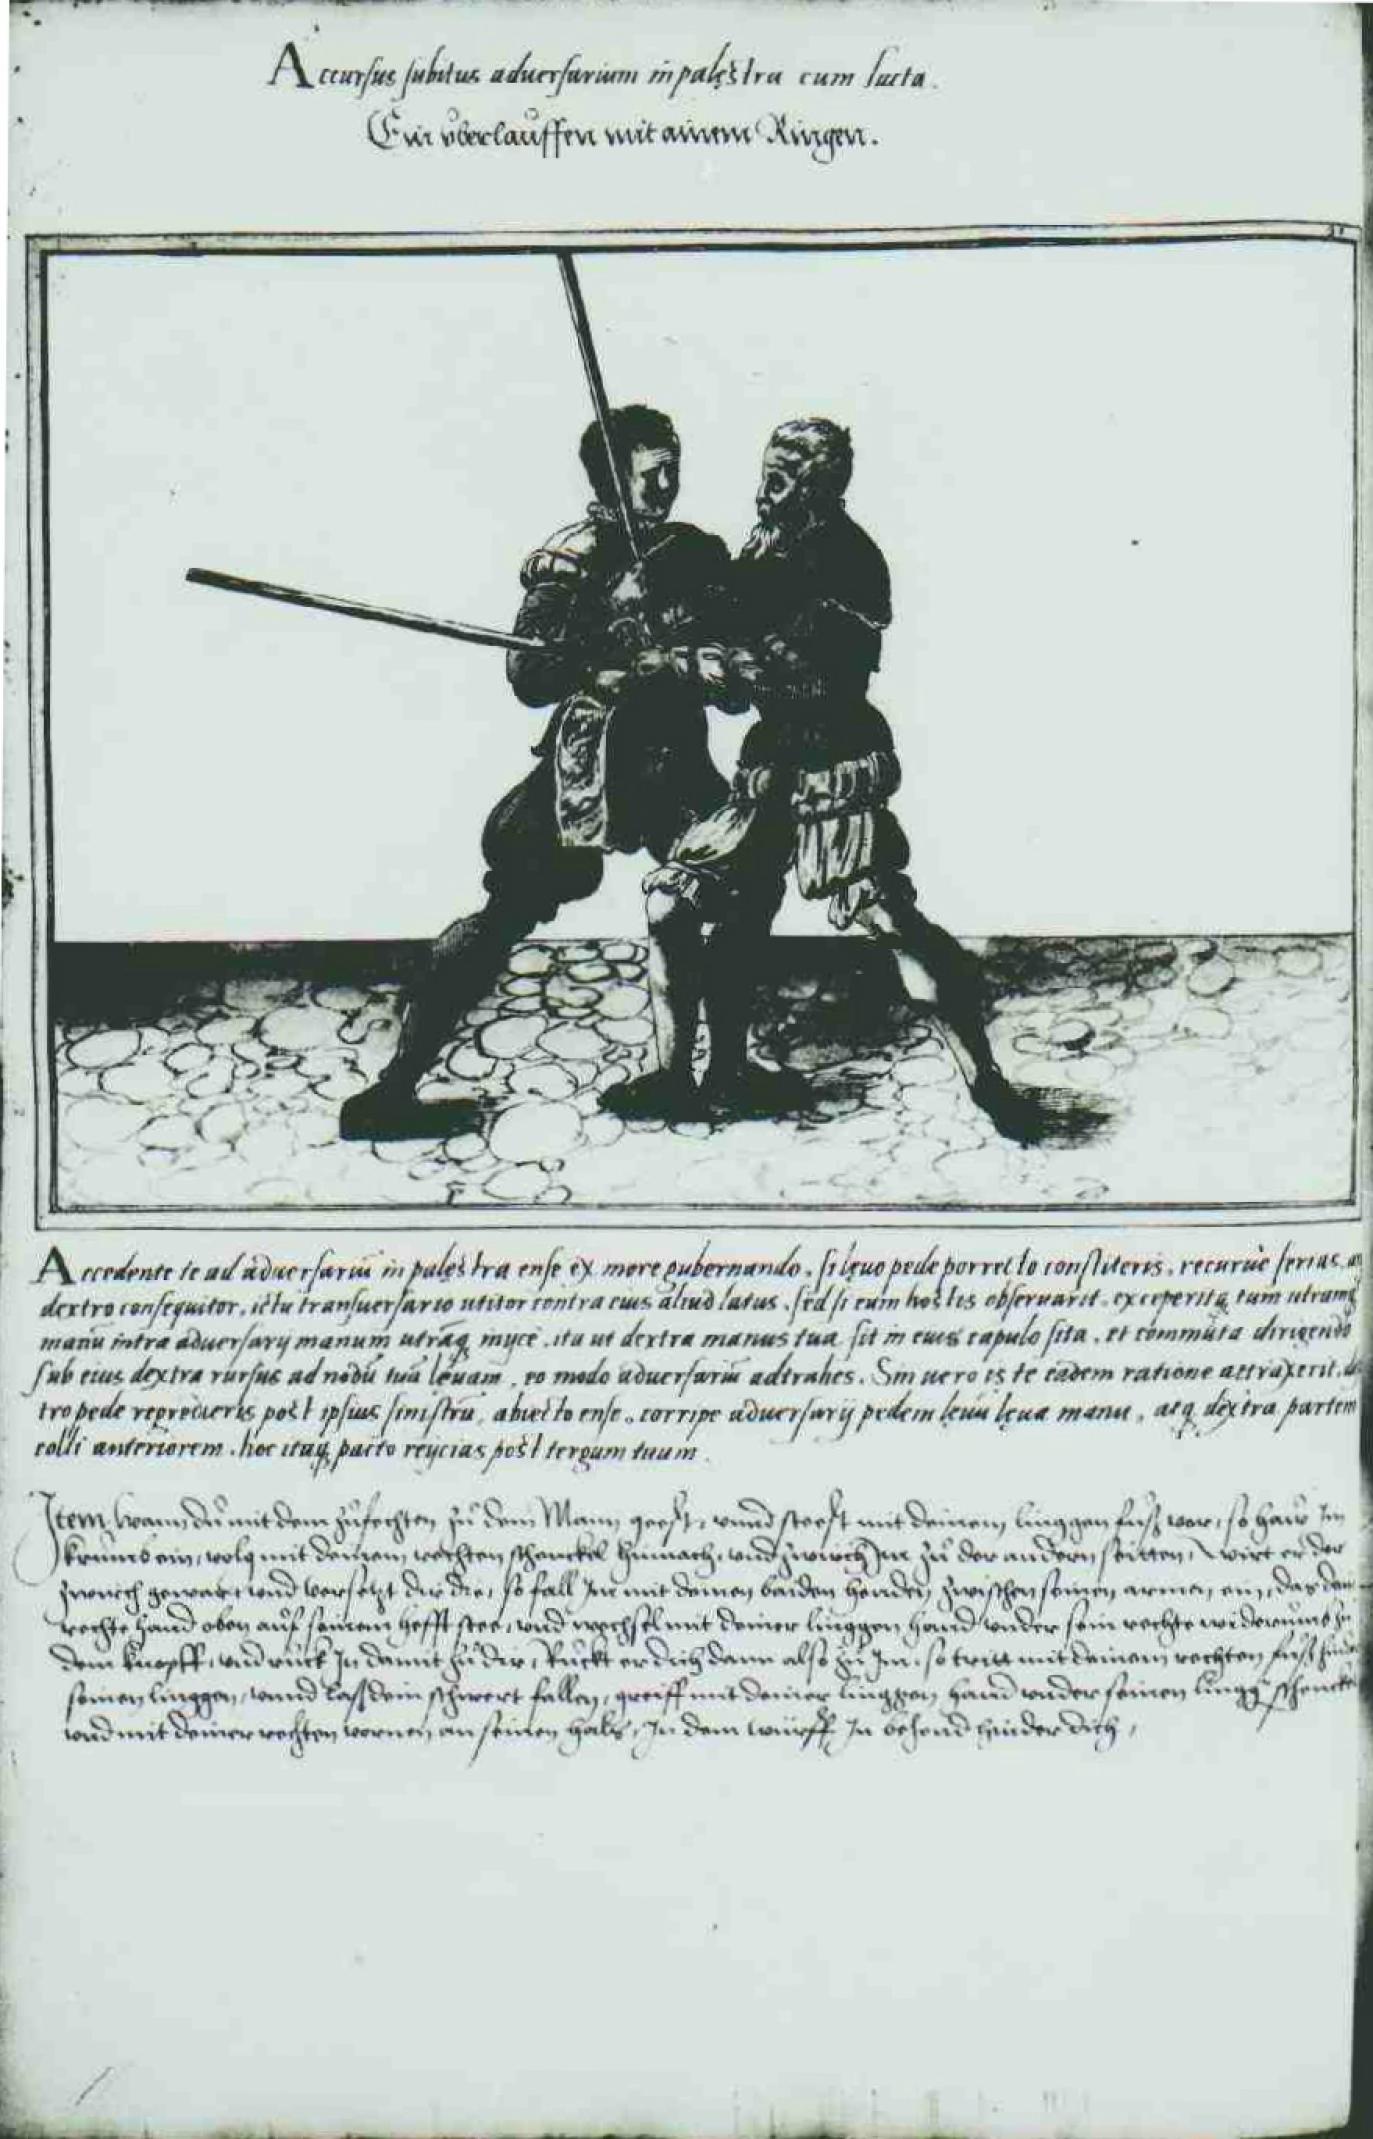 Accursus subitus adversarium in palęstra cum lucta.
Ein vberlauffen mit ainem Ringen.
Accedente te ad adversariū in palęstra ense ex more gubernando, si lęuo pede porrecto constiteris, recurue ferias, ac
dextro consequitor, ictu transuersario utitor contra eius aliud latus, sed si eum hostis obseruarit, exceperitq tum utramq
manū intra adversarij manum utrāq inyce, ita ut dextra manus tua sit in eius capulo sita, et commuta dirigendo
sub eius dextra rursus ad nodū tuā leuam, eo modo adversariū adtrahes. Sin uero is te eadem ratione attraxerit, dex
tro pede regredieris post ipsius sinistrū, abiecto ense, corripe adversarij pedem leuū leua manu, atq dextra partem
colli anteriorem, hoc itaq pacto reijcias post tergum tuum.
Item wann du mit dem zůfechten zů dem Mann geest, vnnd steest mit deinem linggen fůß vor, so haw Im
krumb ein, volg mit deinem rechten schenckel hinnach, vnd zwirch Im zů der andern seitten, wirt er der
zwirch gewar, vnd versetzt dir die, so fall Im mit deinen baiden henden zwischen seinen armen, ein, das dein
rechte hand oben auf seinem hefft stee, vnd wechsel mit deiner linggen hand vnder sein rechte widerumb zu
dem knopff, vnd ruck In damit zů dir, Ruckt er dich dann also zů Im, so trit mit deinem rechten fůß hinder
seinen linggen, vnnd laß dein schwert fallen, greiff mit deiner linggen hand vnder seinen lingg schenckel
vnd mit deiner rechten vornen an seinen hals, In dem würff In behend hinder dich,